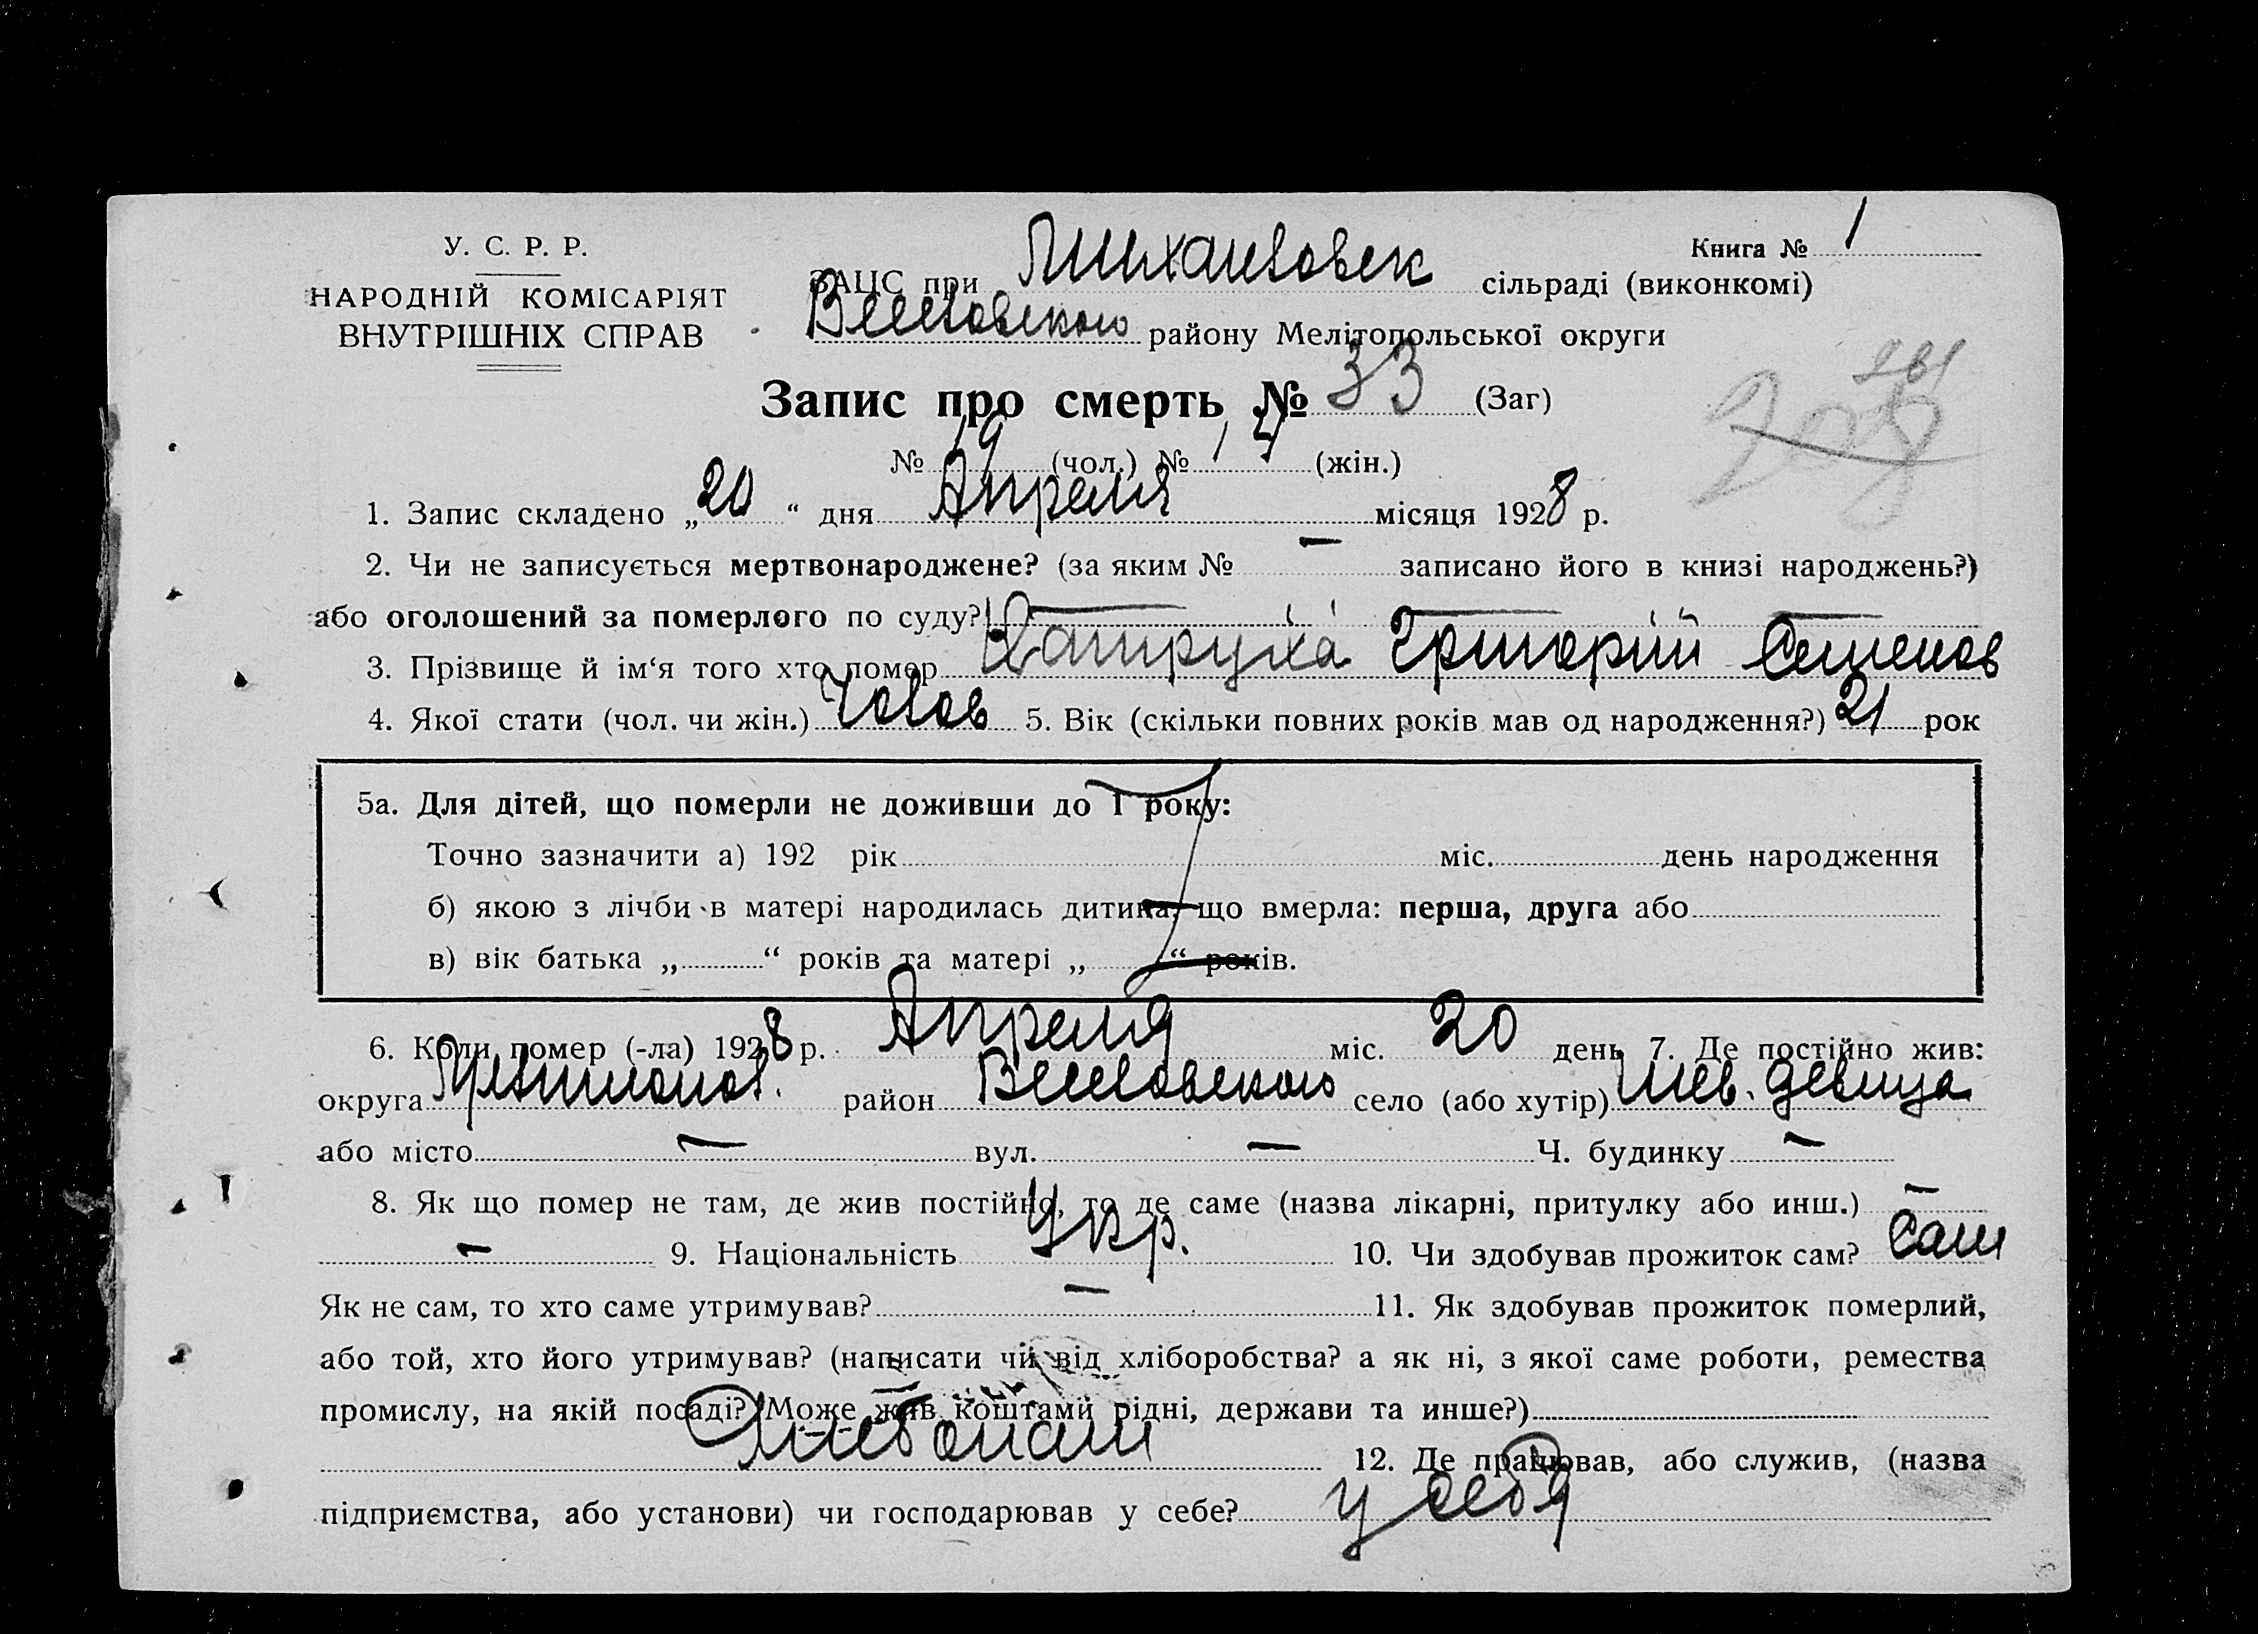 У. С. Р. Р.
НАРОДНІЙ КОМІСАРІЯТ
ВНУТРІШНІХ СПРАВ
Книга № 1
ЗАЦС при Михайловск сільраді (виконкомі)
Веселовского району Мелітопольської округи
Запис про смерть № 33 (Заг)
№ 19 (чол.) № 14 (жін.)
1. Запис складено „20“ дня Апреля місяця 1928 р.
2. Чи не записується мертвонароджене? (за яким № — записано його в книзі народжень?)
або оголошений за померлого по суду? —
3. Прізвище й ім‘я того хто помер Григорій Семенов
4. Якої стати (чол. чи жін.) Чолов 5. Вік (скільки повних років мав од народження?) 21 рок
5а. Для дітей, що померли не доживши до 1 року:
Точно зазначити а) 192 рік міс. день народження
б) якою з лічби в матері народилась дитина, що вмерла: перша, друга або
в) вік батька „ “ років та матері „ “ років.
6. Коли помер (-ла) 1928 р. Апреля міс. 20 день 7. Де постійно жив:
округа район Веселовского село (або хутір)
або місто — вул. — Ч. будинку —
8. Як що помер не там, де жив постійно, то де саме (назва лікарні, притулку або инш.) —
— 9. Національність Укр. 10. Чи здобував прожиток сам? Сам
Як не сам, то хто саме утримував? — 11. Як здобував прожиток померлий,
або той, хто його утримував? (написати чи від хліборобства? а як ні, з якої саме роботи, ремества
промислу, на якій посаді? Може жив коштами рідні, держави та инше?)
12. Де працював, або служив, (назва
підприємства, або установи) чи господарював у себе? у себя